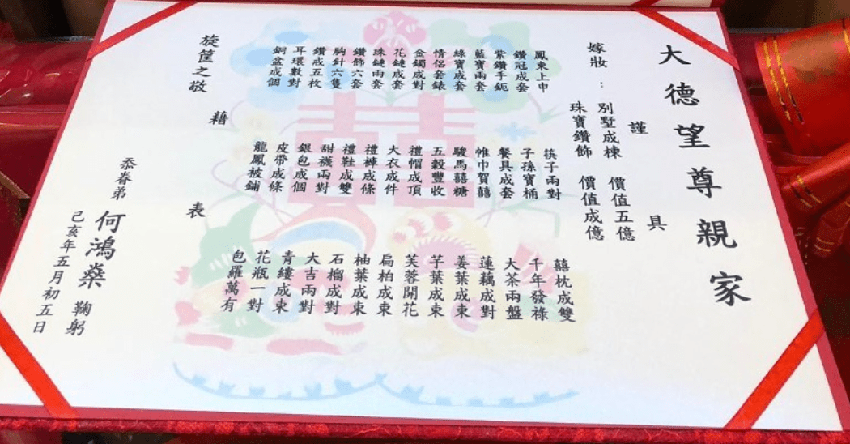 大德望尊親家
謹具
嫁妝：別墅成棟 價值五億
珠寶鑽飾 價值成億
鳳東上申 筷子兩對 囍枕成雙
鑽冠成套 子孫寶桶 千年發祿
紫鑽手鈪 餐具成套 大茶兩盤
藍寶兩套 帷巾賀囍 蓮藕成對
綠寶成套 駿馬囍糖 姜葉成束
情侶套錶 五穀豐收 芋葉成束
金鐲成對 禮帽成頂 芙蓉開花
花鏈成套 大衣成件 扁柏成束
珠鏈兩套 禮褲成條 柚葉成束
鑽飾六套 禮鞋成雙 石榴成對
胸針六隻 甜襪兩對 大吉兩對
鑽戒五枚 銀包成個 青縷成束
耳環數對 皮帶成條 花瓶一對
銅盆成個 龍鳳被鋪 包羅萬有
藉表
旋筐之敬
忝眷弟 何鴻燊 鞠躬
己亥年五月初五日